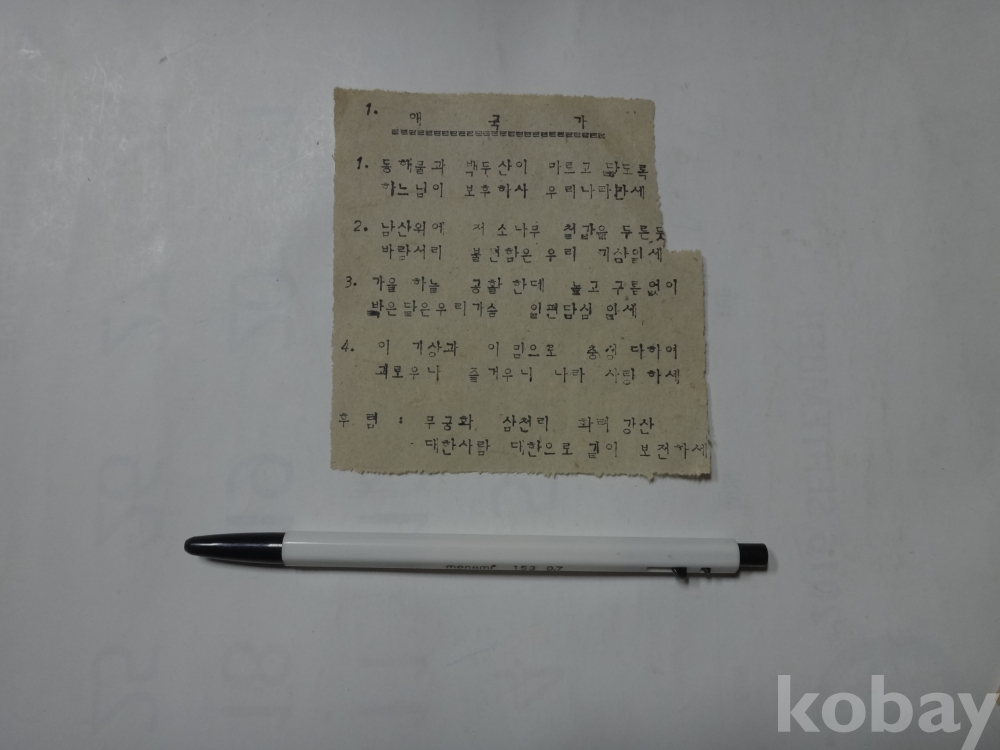 1. 애 국 가
1. 동해물과 백두산이 마르고 닳도록
하느님이 보호하사 우리나라만세
2. 남산위에 저 소나무 철갑을 두른듯
바람서리 불변함은 우리 기상일세
3. 가을 하늘 공활 한데 높고 구름없이
밝은달은우리가슴 일편단심 일세
4. 이 기상과 이 맘으로 충성 다하여
괴로우나 즐거우나 나라 사랑 하세
후 렴 : 무궁화 삼천리 화려 강산
대한사람 대한으로 길이 보전하세
monami 153 0.7
kobay